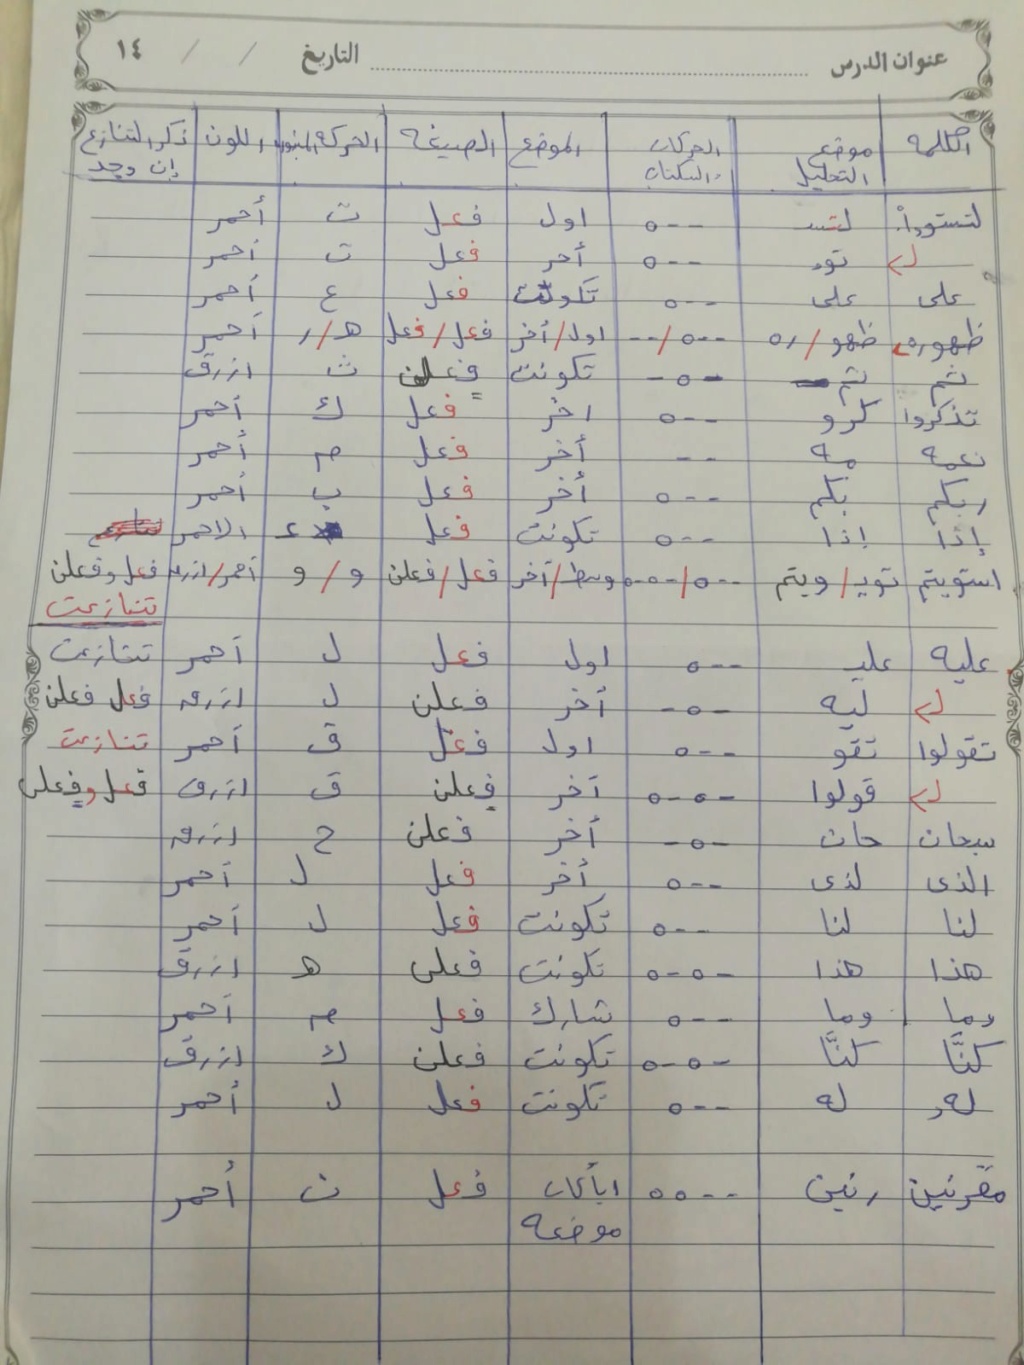 عنوان الدرس التاريخ / / ١٤
الكلمة موضع التحليل الحركات والسكنات الموضع الصيغة الحركة اللون ذكر التنازع إن وجد
لتستووا لتسـ --٥ اول فعل ت أحمر
تو --٥ أخر فعل ت أحمر
على على --٥ تكونت فعل ع أحمر
ظهوره ظهو/ره --٥/-- اول/أخر فعل/فعل هـ/ر أحمر
ثم ثم -٥- تكونت فعلن ث ازرق
تذكروا كرو --٥ اخر فعل ك أحمر
نعمه مه -- أخر فعل م أحمر
ربكم بكم --٥ أخر فعل ب أحمر
إذا إذا --٥ تكونت فعل الاحمر
استويتم توير/ويتم --٥/-٥-٥ وسط/آخر فعل/فعلن و/و أحمر/ازرق فعل وفعلن
تنازعت
عليه عليـ --٥ اول فعل ل أحمر تنازعت
ليه -٥- أخر فعلن ل ازرق فعل فعلن
تقولوا تقو --٥ اول فعل ق أحمر تنازعت
قولوا -٥-٥ آخر فعلن ق ازرق فعل وفعلن
سبحان حان -٥- أخر فعلن ح ازرق
الذى لذى --٥ أخر فعل ل أحمر
لنا لنا --٥ تكونت فعل ل أحمر
هذا هذا -٥-٥ تكونت فعلن هـ ازرق
وما وما --٥ شارك فعل م أحمر
كنَّا كنَّا -٥-٥ تكونت فعلن ك ازرق
له له --٥ تكونت فعل ل أحمر
مقرنين رنين --٥٥ فعل ن أحمر
موضعه